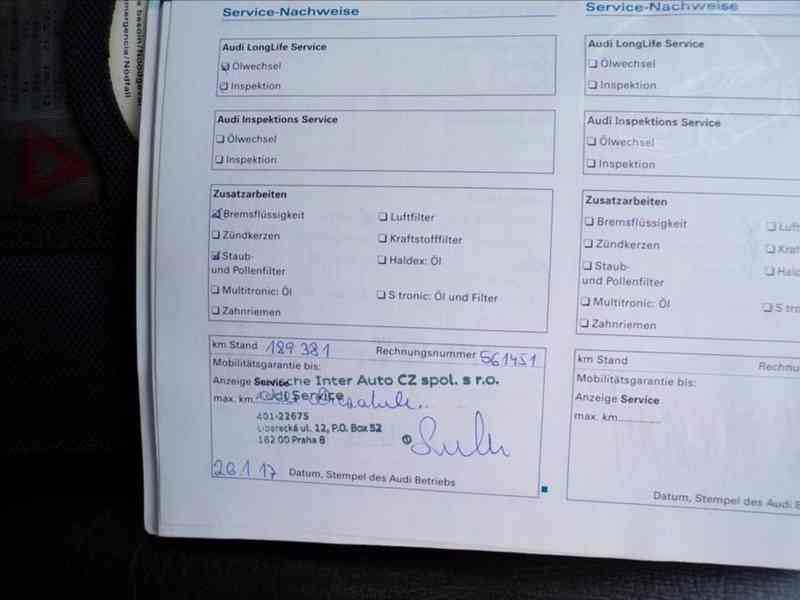 Service-Nachweise
Audi LongLife Service
Ölwechsel
Inspektion
Audi Inspektions Service
Ölwechsel
Inspektion
Zusatzarbeiten
Bremsflüssigkeit
Luftfilter
Zündkerzen
Kraftstofffilter
Staub-
und Pollenfilter
Haldex: Öl
Multitronic: Öl
S tronic: Öl und Filter
Zahnriemen
km Stand 189 381 Rechnungsnummer 561451
Mobilitätsgarantie bis:
Anzeige Service
Inter Auto CZ spol. s r.o.
max. km
Service
401-22675
Liberecká ul. 12, P.O. Box 52
182 00 Praha 8
26 1 17 Datum, Stempel des Audi Betriebs
Service-Nachweise
Audi LongLife Service
Ölwechsel
Inspektion
Audi Inspektions Service
Ölwechsel
Inspektion
Zusatzarbeiten
Bremsflüssigkeit
Zündkerzen
Staub-
und Pollenfilter
Multitronic: Öl
S tro
Zahnriemen
km Stand
Mobilitätsgarantie bis:
Anzeige Service
max. km............
Datum, Stempel des Audi
mergencia/Notfall